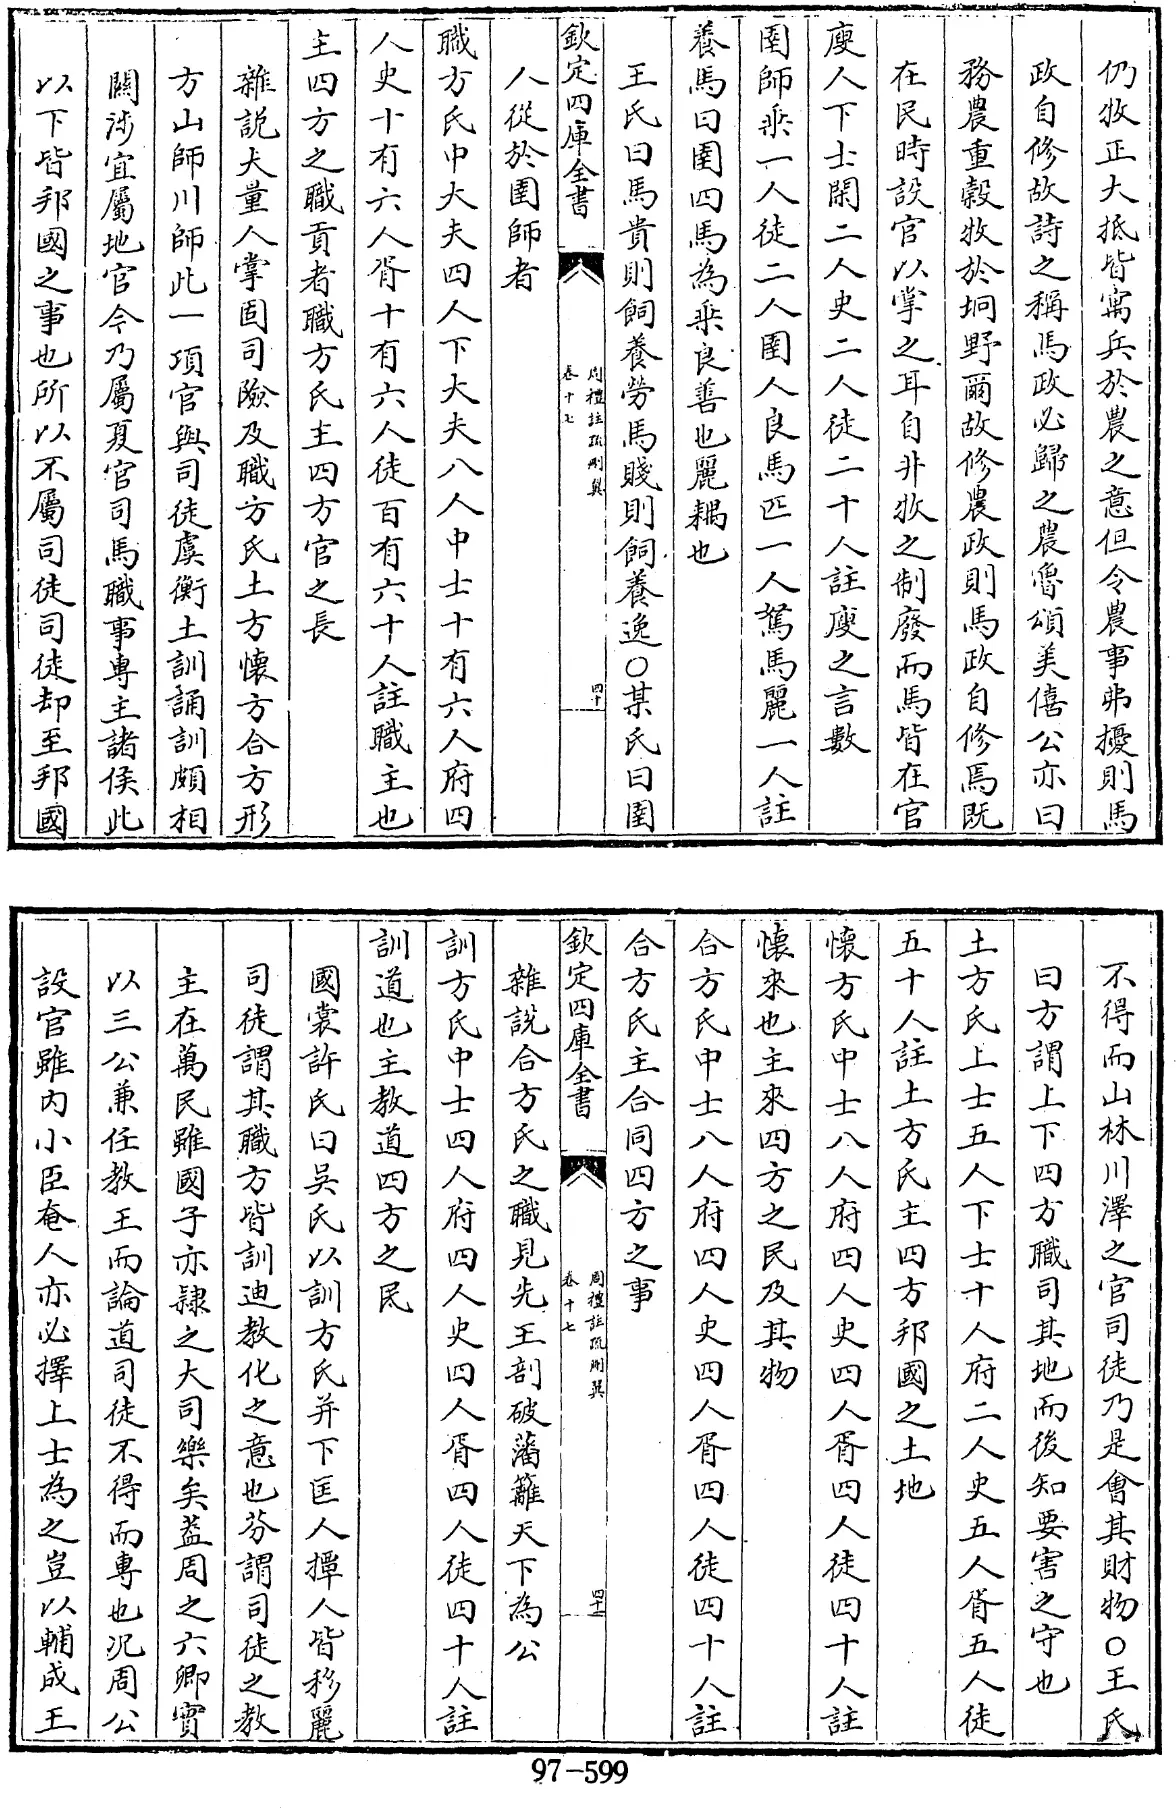 仍牧正大抵皆寓兵於農之意但令農事弗擾則馬
政自修故詩之稱馬政必歸之農魯頌美僖公亦曰
務農重穀牧於坰野爾故修農政則馬政自修焉既
在民時設官以掌之耳自井牧之制廢而馬皆在官
廋人下士閑二人史二人徒二十人註廋之言數
圉師乘一人徒二人圉人良馬匹一人駑馬麗一人註
養馬曰圉四馬為乘良善也麗耦也
王氏曰馬貴則飼養勞馬賤則飼養逸○某氏曰圉
欽定四庫全書
周禮註疏刪翼
卷十七
四十
人從於圉師者
職方氏中大夫四人下大夫八人中士十有六人府四
人史十有六人胥十有六人徒百有六十人註職主也
主四方之職貢者職方氏主四方官之長
雜説夫量人掌固司險及職方氏土方懷方合方形
方山師川師此一項官與司徒虞衡土訓誦訓頗相
關涉宜屬地官今乃屬夏官司馬職事專主諸侯此
以下皆邦國之事也所以不屬司徒司徒却至邦國
不得而山林川澤之官司徒乃是會其財物○王氏
曰方謂上下四方職司其地而後知要害之守也
土方氏上士五人下士十人府二人史五人胥五人徒
五十人註土方氏主四方邦國之土地
懷方氏中士八人府四人史四人胥四人徒四十人註
懷來也主來四方之民及其物
合方氏中士八人府四人史四人胥四人徒四十人註
合方氏主合同四方之事
欽定四庫全書
周禮註疏刪翼
卷十七
四十一
雜說合方氏之職見先王剖破藩籬天下為公
訓方氏中士四人府四人史四人胥四人徒四十人註
訓道也主教道四方之民
國裳許氏曰吴氏以訓方氏并下匡人撢人皆移麗
司徒謂其職方皆訓迪教化之意也芬謂司徒之教
主在萬民雖國子亦隷之大司樂矣葢周之六卿實
以三公兼任教王而論道司徒不得而專也况周公
設官雖内小臣奄人亦必擇上士為之豈以輔成王
97-599